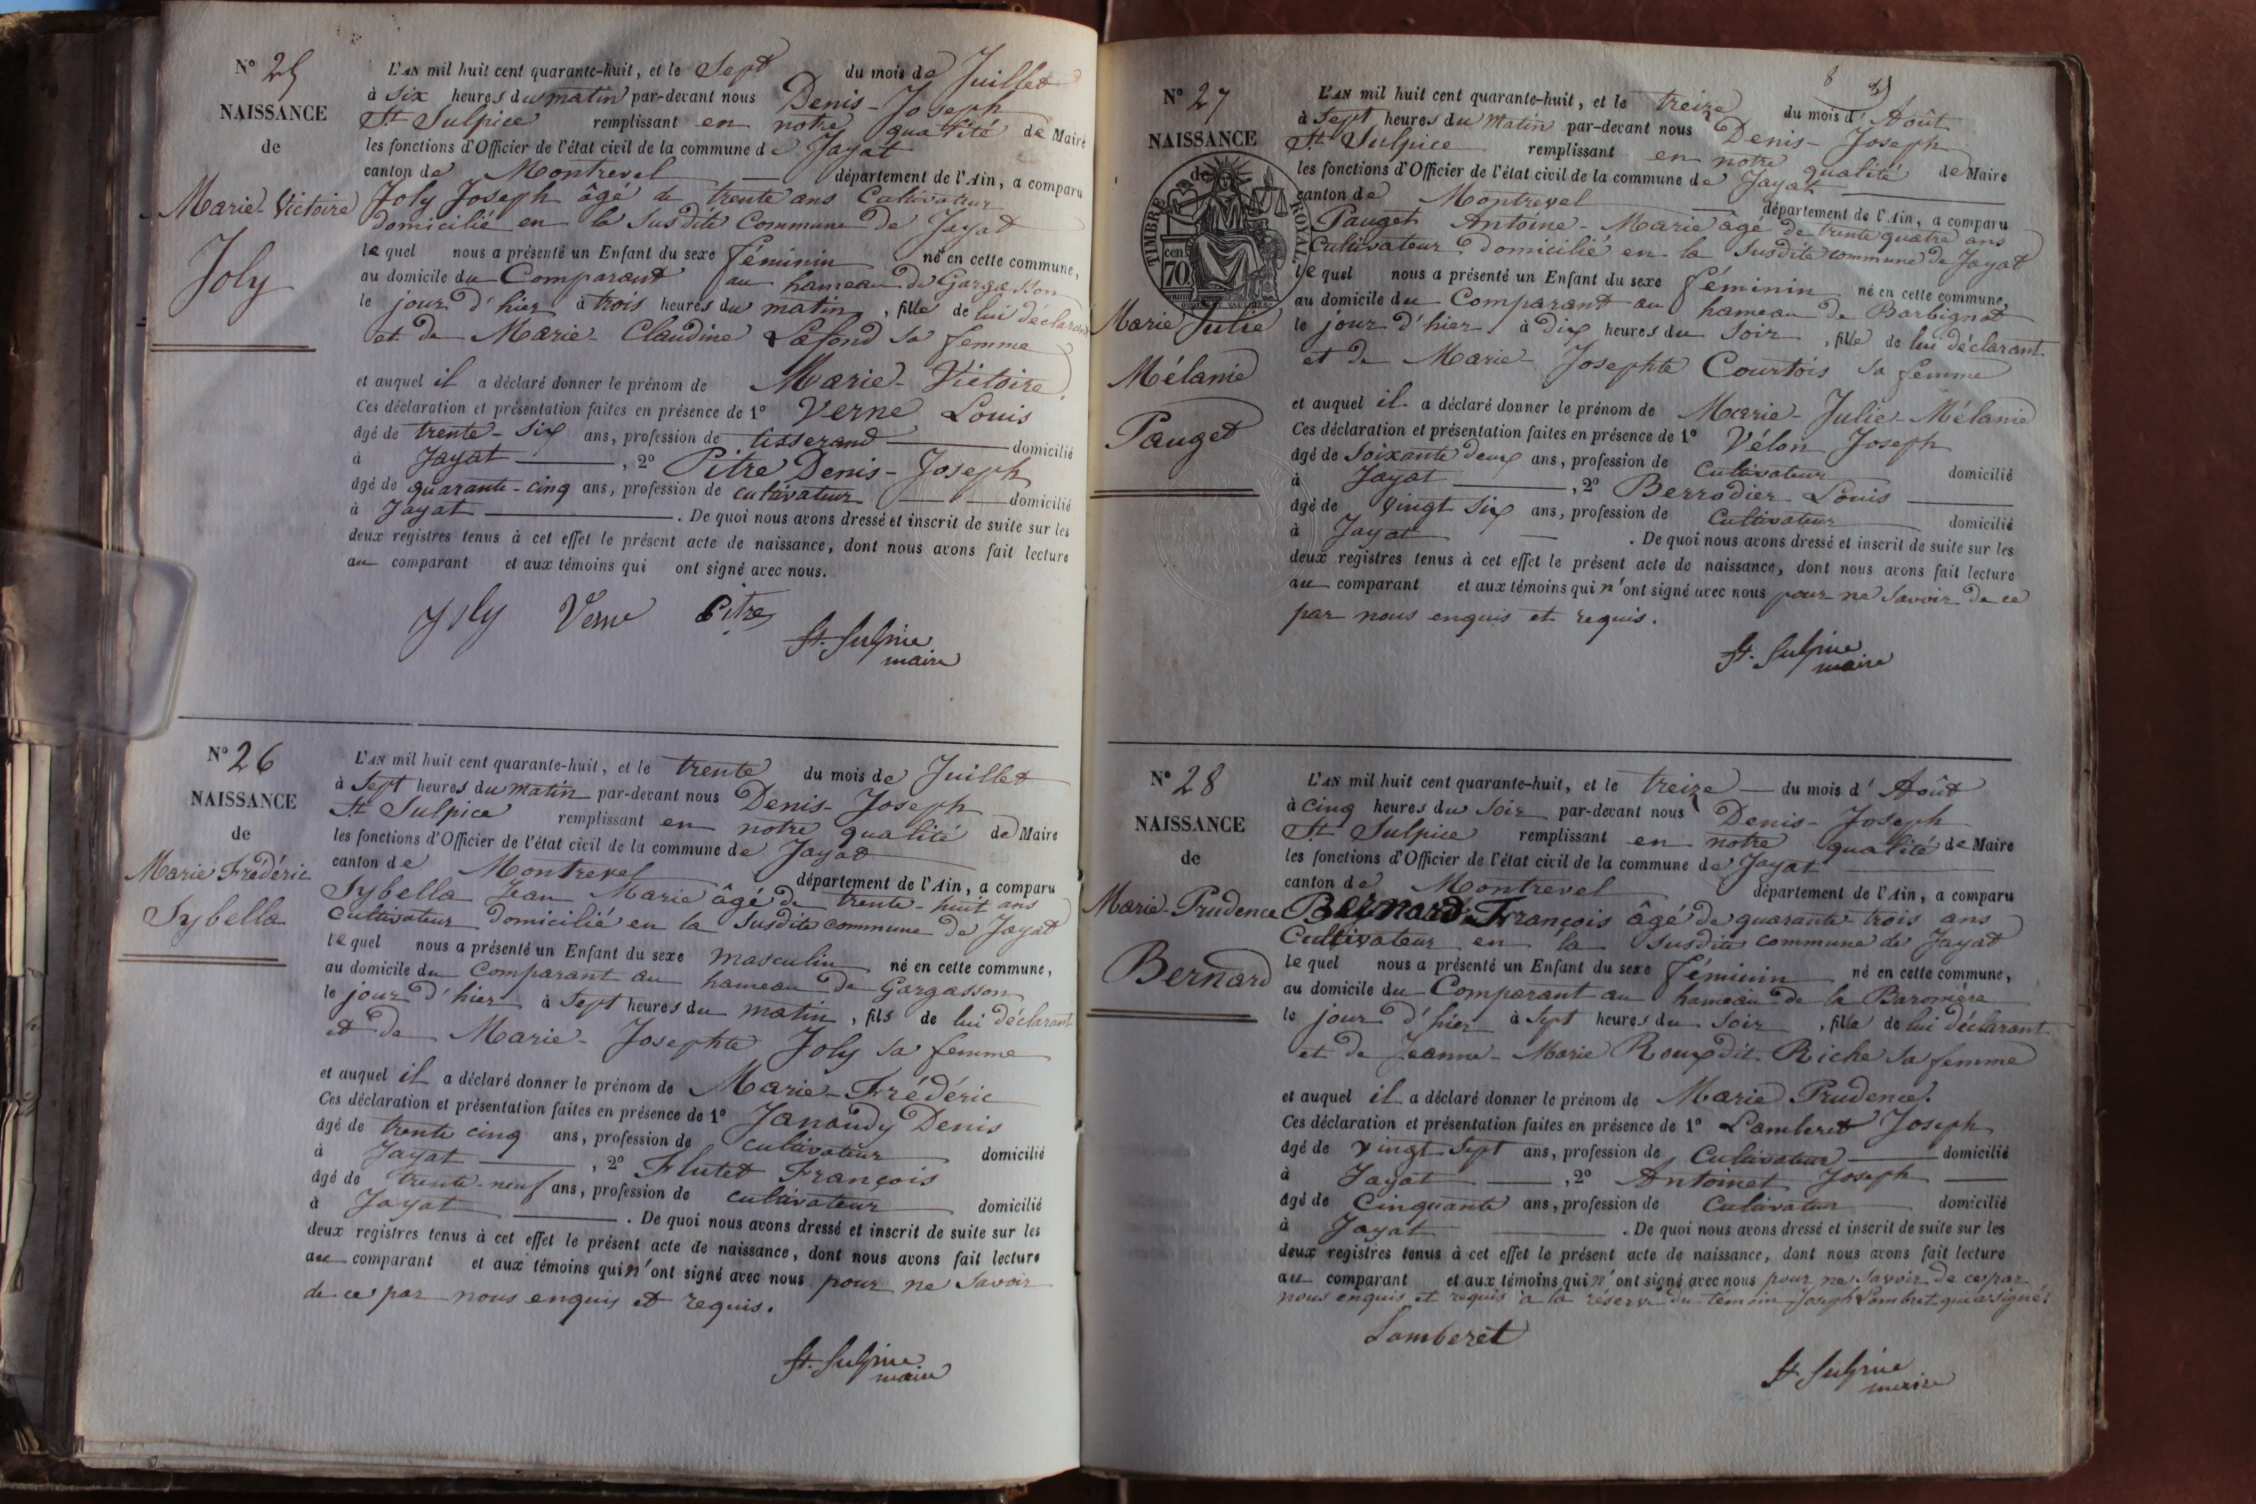 N° 25
NAISSANCE
de
Marie-Victoire
Joly
L'AN mil huit cent quarante-huit, et le Sept du mois de Juillet
à six heures du matin par-devant nous Denis-Joseph
St Sulpice remplissant en notre qualité de Maire
les fonctions d'Officier de l'état civil de la commune de Jayat
canton de Montrevel département de l'Ain, a comparu
Joly Joseph âgé de trente ans Cultivateur
domicilié en la susdite Commune de Jayat
lequel nous a présenté un Enfant du sexe féminin né en cette commune,
au domicile du Comparant au hameau de Gargasson
le jour d'hier à trois heures du matin, fille de lui déclarant
et de Marie-Claudine Lafond sa femme
et auquel il a déclaré donner le prénom de Marie-Victoire.
Ces déclaration et présentation faites en présence de 1° Verne Louis
âgé de trente-six ans, profession de tisserand domicilié
à Jayat, 2° Pitre Denis-Joseph
âgé de quarante-cinq ans, profession de cultivateur domicilié
à Jayat. De quoi nous avons dressé et inscrit de suite sur les
deux registres tenus à cet effet le présent acte de naissance, dont nous avons fait lecture
au comparant et aux témoins qui ont signé avec nous.
Joly Verne Pitre
St. Sulpice
maire
N° 26
NAISSANCE
de
Marie Frédéric
Sybella
L'AN mil huit cent quarante-huit, et le trente du mois de Juillet
à Sept heures du matin par-devant nous Denis-Joseph
St Sulpice remplissant en notre qualité de Maire
les fonctions d'Officier de l'état civil de la commune de Jayat
canton de Montrevel département de l'Ain, a comparu
Sybella Jean Marie âgé de trente-huit ans
Cultivateur domicilié en la susdite commune de Jayat
lequel nous a présenté un Enfant du sexe masculin né en cette commune,
au domicile du Comparant au hameau de Gargasson
le jour d'hier à Sept heures du matin, fils de lui déclarant
et de Marie-Josephte Joly sa femme
et auquel il a déclaré donner le prénom de Marie-Frédéric
Ces déclaration et présentation faites en présence de 1° Janaudy Denis
âgé de trente cinq ans, profession de cultivateur domicilié
à Jayat, 2° Flutet François
âgé de trente-neuf ans, profession de cultivateur domicilié
à Jayat. De quoi nous avons dressé et inscrit de suite sur les
deux registres tenus à cet effet le présent acte de naissance, dont nous avons fait lecture
au comparant et aux témoins qui n'ont signé avec nous pour ne savoir
de ce par nous enquis et requis.
St. Sulpice
maire
8
N° 27
NAISSANCE
de
TIMBRE ROYAL
70 cen
Marie Julie
Mélanie
Pauget
L'AN mil huit cent quarante-huit, et le treize du mois d'Août
à Sept heures du matin par-devant nous Denis-Joseph
St Sulpice remplissant en notre qualité de Maire
les fonctions d'Officier de l'état civil de la commune de Jayat
canton de Montrevel département de l'Ain, a comparu
Pauget Antoine-Marie âgé de trente quatre ans
Cultivateur domicilié en la susdite commune de Jayat
lequel nous a présenté un Enfant du sexe féminin né en cette commune,
au domicile du Comparant au hameau de Barbignat
le jour d'hier à dix heures du soir, fille de lui déclarant
et de Marie-Josephte Courtois sa femme
et auquel il a déclaré donner le prénom de Marie-Julie-Mélanie
Ces déclaration et présentation faites en présence de 1° Vélon Joseph
âgé de soixante deux ans, profession de Cultivateur domicilié
à Jayat, 2° Berrodier Louis
âgé de vingt six ans, profession de Cultivateur domicilié
à Jayat. De quoi nous avons dressé et inscrit de suite sur les
deux registres tenus à cet effet le présent acte de naissance, dont nous avons fait lecture
au comparant et aux témoins qui n'ont signé avec nous pour ne savoir de ce
par nous enquis et requis.
St. Sulpice
maire
N° 28
NAISSANCE
de
Marie-Prudence
Bernard
L'AN mil huit cent quarante-huit, et le treize du mois d'Août
à cinq heures du soir par-devant nous Denis-Joseph
St Sulpice remplissant en notre qualité de Maire
les fonctions d'Officier de l'état civil de la commune de Jayat
canton de Montrevel département de l'Ain, a comparu
Bernard François âgé de quarante trois ans
Cultivateur en la susdite commune de Jayat
lequel nous a présenté un Enfant du sexe féminin né en cette commune,
au domicile du Comparant au hameau de la Baromière
le jour d'hier à sept heures du soir, fille de lui déclarant
et de Jeanne-Marie Roux dit Riche sa femme
et auquel il a déclaré donner le prénom de Marie Prudence.
Ces déclaration et présentation faites en présence de 1° Lamberet Joseph
âgé de vingt sept ans, profession de Cultivateur domicilié
à Jayat, 2° Antoinet Joseph
âgé de Cinquante ans, profession de Cultivateur domicilié
à Jayat. De quoi nous avons dressé et inscrit de suite sur les
deux registres tenus à cet effet le présent acte de naissance, dont nous avons fait lecture
au comparant et aux témoins qui n'ont signé avec nous pour ne savoir de ce par
nous enquis et requis à la réserve du témoin Joseph Lambret qui a signé.
Lamberet
St Sulpice
maire